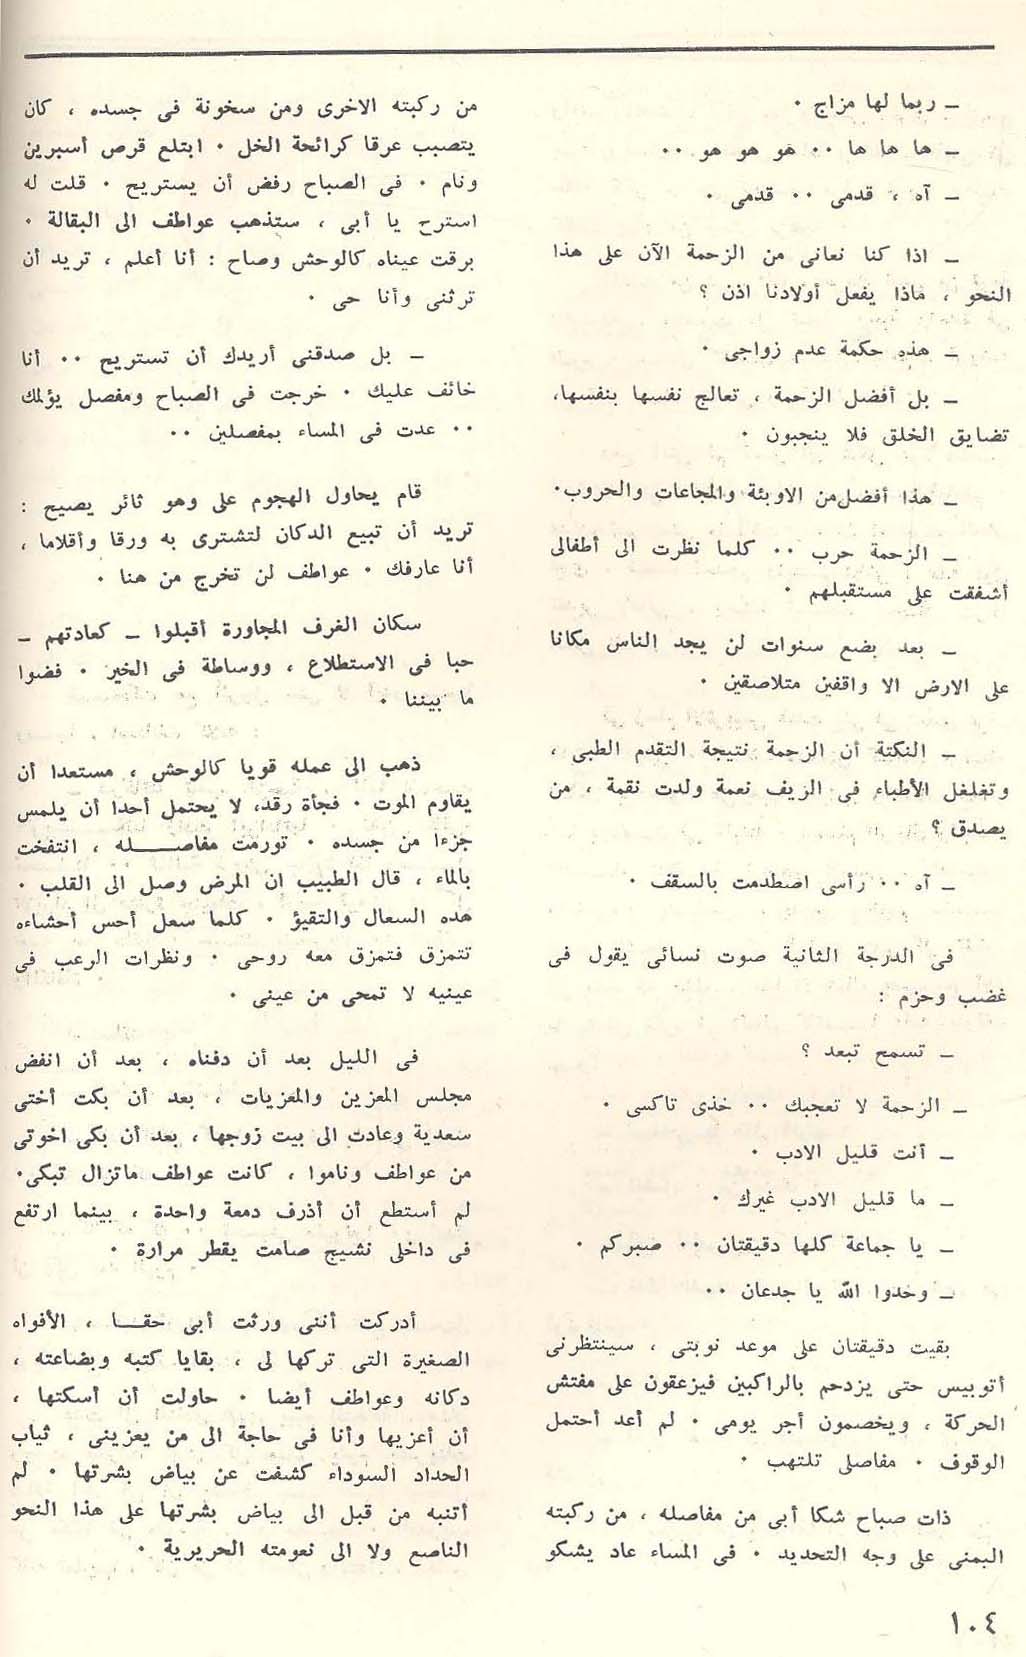 ـ ربما لها مزاج ٠
ـ ها ها ها ٠٠ هو هو هو ٠٠
ـ آه ، قدمى ٠٠ قدمى ٠
ـ اذا كنا نعانى من الزحمة الآن على هذا
النحو ، ماذا يفعل أولادنا اذن ؟
ـ هذه حكمة عدم زواجى ٠
ـ بل أفضل الزحمة ، تعالج نفسها بنفسها،
تضايق الخلق فلا ينجبون ٠
ـ هذا أفضل من الاوبئة والمجاعات والحروب٠
ـ الزحمة حرب ٠٠ كلما نظرت الى أطفالى
أشفقت على مستقبلهم ٠
ـ بعد بضع سنوات لن يجد الناس مكانا
على الارض الا واقفين متلاصقين ٠
ـ النكتة أن الزحمة نتيجة التقدم الطبى ،
وتغلغل الأطباء فى الريف نعمة ولدت نقمة ، من
يصدق ؟
ـ آه ٠٠ رأسى اصطدمت بالسقف ٠
فى الدرجة الثانية صوت نسائى يقول فى
غضب وحزم :
ـ تسمح تبعد ؟
ـ الزحمة لا تعجبك ٠٠ خذى تاكسى ٠
ـ أنت قليل الادب ٠
ـ ما قليل الادب غيرك ٠
ـ يا جماعة كلها دقيقتان ٠٠ صبركم ٠
ـ وحدوا الله يا جدعان ٠٠
بقيت دقيقتان على موعد نوبتى ، سينتظرنى
أتوبيس حتى يزدحم بالراكبين فيزعقون على مفتش
الحركة ، ويخصمون أجر يومى ٠ لم أعد أحتمل
الوقوف ٠ مفاصلى تلتهب ٠
ذات صباح شكا أبى من مفاصله ، من ركبته
اليمنى على وجه التحديد ٠ فى المساء عاد يشكو
من ركبته الاخرى ومن سخونة فى جسده ، كان
يتصبب عرقا كرائحة الخل ٠ ابتلع قرص أسبرين
ونام ٠ فى الصباح رفض أن يستريح ٠ قلت له
استرح يا أبى ، ستذهب عواطف الى البقالة ٠
برقت عيناه كالوحش وصاح : أنا أعلم ، تريد أن
ترثنى وأنا حى ٠
ـ بل صدقنى أريدك أن تستريح ٠٠ أنا
خائف عليك ٠ خرجت فى الصباح ومفصل يؤلمك
٠٠ عدت فى المساء بمفصلين ٠٠
قام يحاول الهجوم على وهو ثائر يصيح :
تريد أن تبيع الدكان لتشترى به ورقا وأقلاما ،
أنا عارفك ٠ عواطف لن تخرج من هنا ٠
سكان الغرف المجاورة أقبلوا ـ كعادتهم ـ
حبا فى الاستطلاع ، ووساطة فى الخير ٠ فضوا
ما بيننا ٠
ذهب الى عمله قويا كالوحش ، مستعدا أن
يقاوم الموت ٠ فجأة رقد، لا يحتمل أحدا أن يلمس
جزءا من جسده ٠ تورمت مفاصـــله ، انتفخت
بالماء ، قال الطبيب ان المرض وصل الى القلب ٠
هده السعال والتقيؤ ٠ كلما سعل أحس أحشاءه
تتمزق فتمزق معه روحى ٠ ونظرات الرعب فى
عينيه لا تمحى من عينى ٠
فى الليل بعد أن دفناه ، بعد أن انفض
مجلس المعزين والمعزيات ، بعد أن بكت أختى
سعدية وعادت الى بيت زوجها ، بعد أن بكى اخوتى
من عواطف وناموا ، كانت عواطف ماتزال تبكى٠
لم أستطع أن أذرف دمعة واحدة ، بينما ارتفع
فى داخلى نشيج صامت يقطر مرارة ٠
أدركت أننى ورثت أبى حقــا ، الأفواه
الصغيرة التى تركها لى ، بقايا كتبه وبضاعته ،
دكانه وعواطف أيضا ٠ حاولت أن أسكتها ،
أن أعزيها وأنا فى حاجة الى من يعزينى ، ثياب
الحداد السوداء كشفت عن بياض بشرتها ٠ لم
أتنبه من قبل الى بياض بشرتها على هذا النحو
الناصع ولا الى نعومته الحريرية ٠
١٠٤